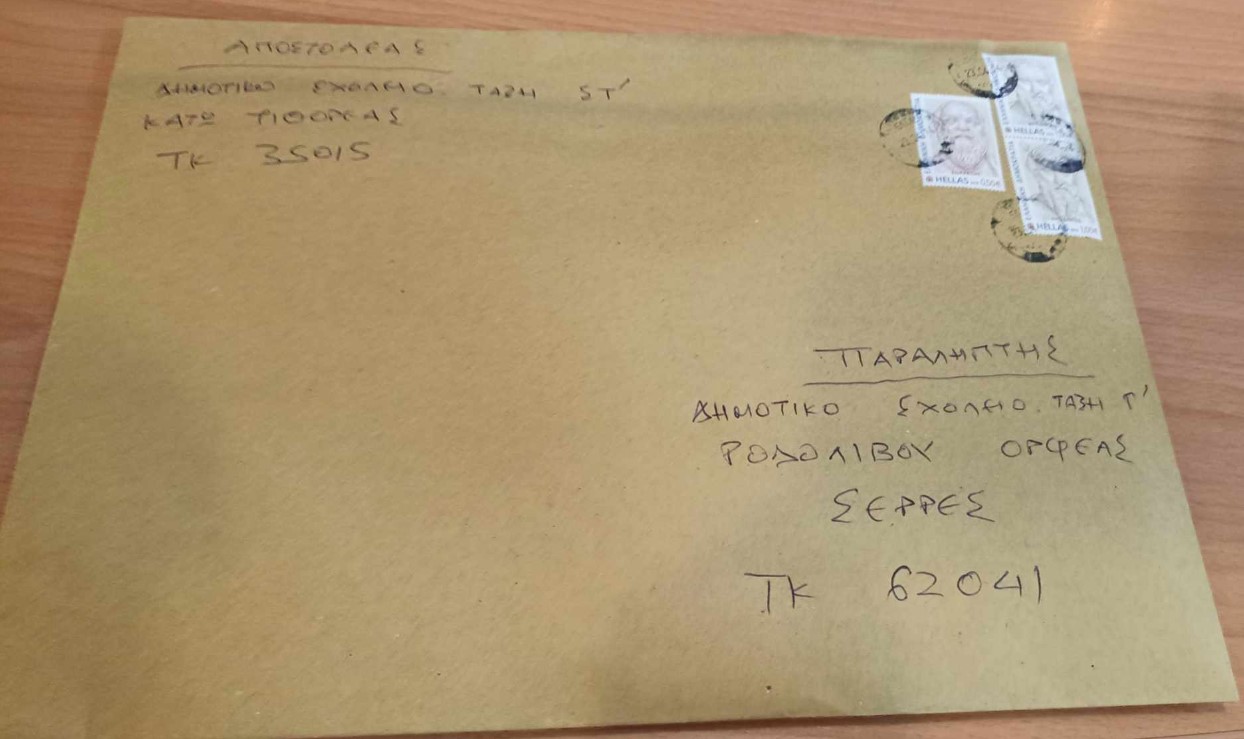 ΑΠΟΣΤΟΛΕΑΣ
ΔΗΜΟΤΙΚΟ ΣΧΟΛΕΙΟ. ΤΑΞΗ ΣΤ'
ΚΑΤΩ ΤΙΘΟΡΕΑΣ
ΤΚ 35015
HELLAS 0,50€
HELLAS
HELLAS 1,00€
ΠΑΡΑΛΗΠΤΗΣ
ΔΗΜΟΤΙΚΟ ΣΧΟΛΕΙΟ. ΤΑΞΗ Γ'
ΡΟΔΟΛΙΒΟΥ ΟΡΦΕΑΣ
ΣΕΡΡΕΣ
ΤΚ 62041